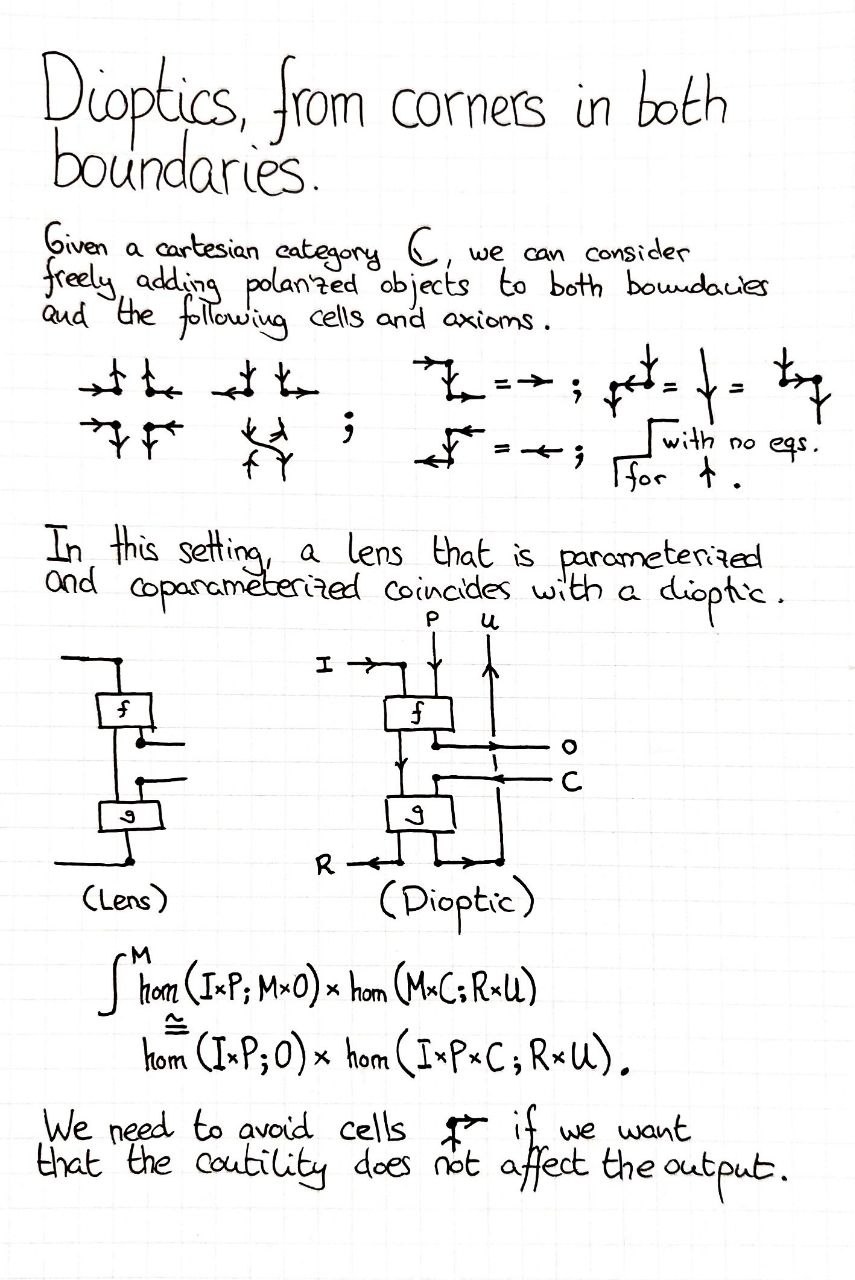 Dioptics, from corners in both
boundaries.
Given a cartesian category ℂ, we can consider
freely adding polarized objects to both boundaries
and the following cells and axioms.
= ; = =
; = ; with no eqs.
for ↑.
In this setting, a lens that is parameterized
and coparameterized coincides with a dioptic.
P U
I
f f
O
C
g g
R
(Lens) (Dioptic)
∫^M hom(I×P; M×O) × hom(M×C; R×U)
≅
hom(I×P; O) × hom(I×P×C; R×U).
We need to avoid cells if we want
that the coutility does not affect the output.